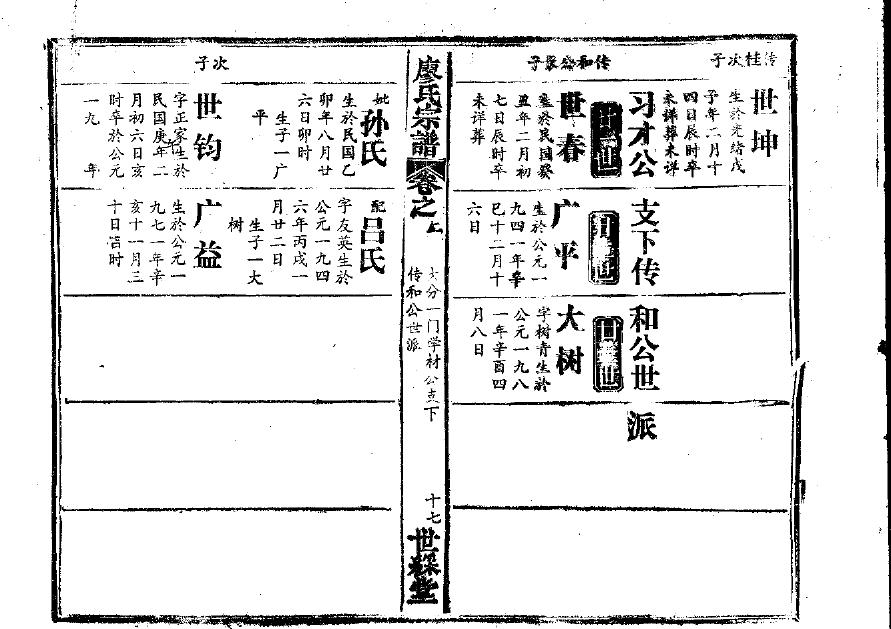 传桂次子
世坤
生於光绪戊
子年二月十
四日辰时卒
未详葬未详
习才公支下传和公世派
传和公长子
世春
生於民国癸
丑年二月初
七日辰时卒
未详葬
广平
生於公元一
九四一年辛
巳十二月十
六日
大树
字树青生於
公元一九八
一年辛酉四
月八日
廖氏宗譜
卷之上
大分一门学材公支下
传和公世派
十七
世綵堂
妣孙氏
生於民国乙
卯年八月廿
六日卯时
生子一广
平
配吕氏
字友英生於
公元一九四
六年丙戌一
月廿二日
生子一大
树
次子
世钧
字正家生於
民国庚年二
月初六日亥
时卒於公元
一九 年
广益
生於公元一
九七一年辛
亥十一月三
十日时